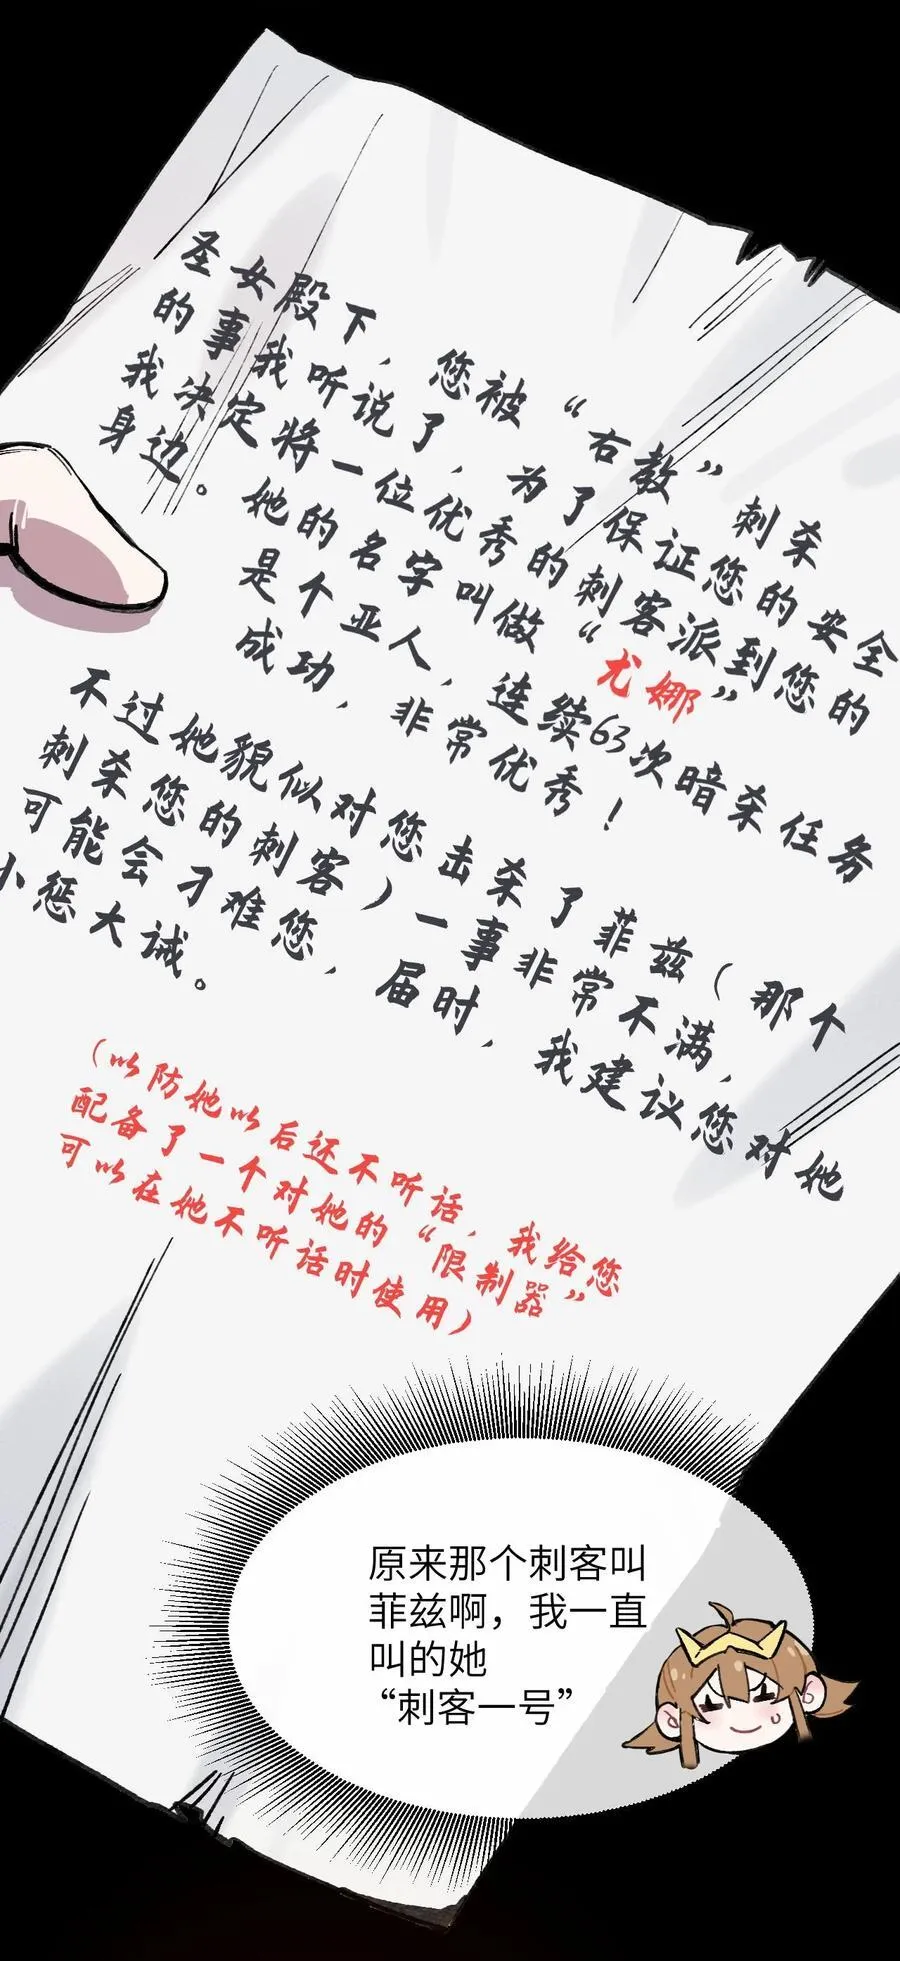 圣女殿下，您被“右教”刺杀
的事我听说了，为了保证您的安全
我决定将一位优秀的刺客派到您的
身边。她的名字叫做“尤娜”
是个亚人，连续63次暗杀任务
成功，非常优秀！
不过她貌似对您击杀了菲兹（那个
刺杀您的刺客）一事非常不满，
可能会刁难您，届时，我建议您对她
小惩大诫。
（以防她以后还不听话，我给您
配备了一个对她的“限制器”
可以在她不听话时使用）
原来那个刺客叫
菲兹啊，我一直
叫的她
“刺客一号”